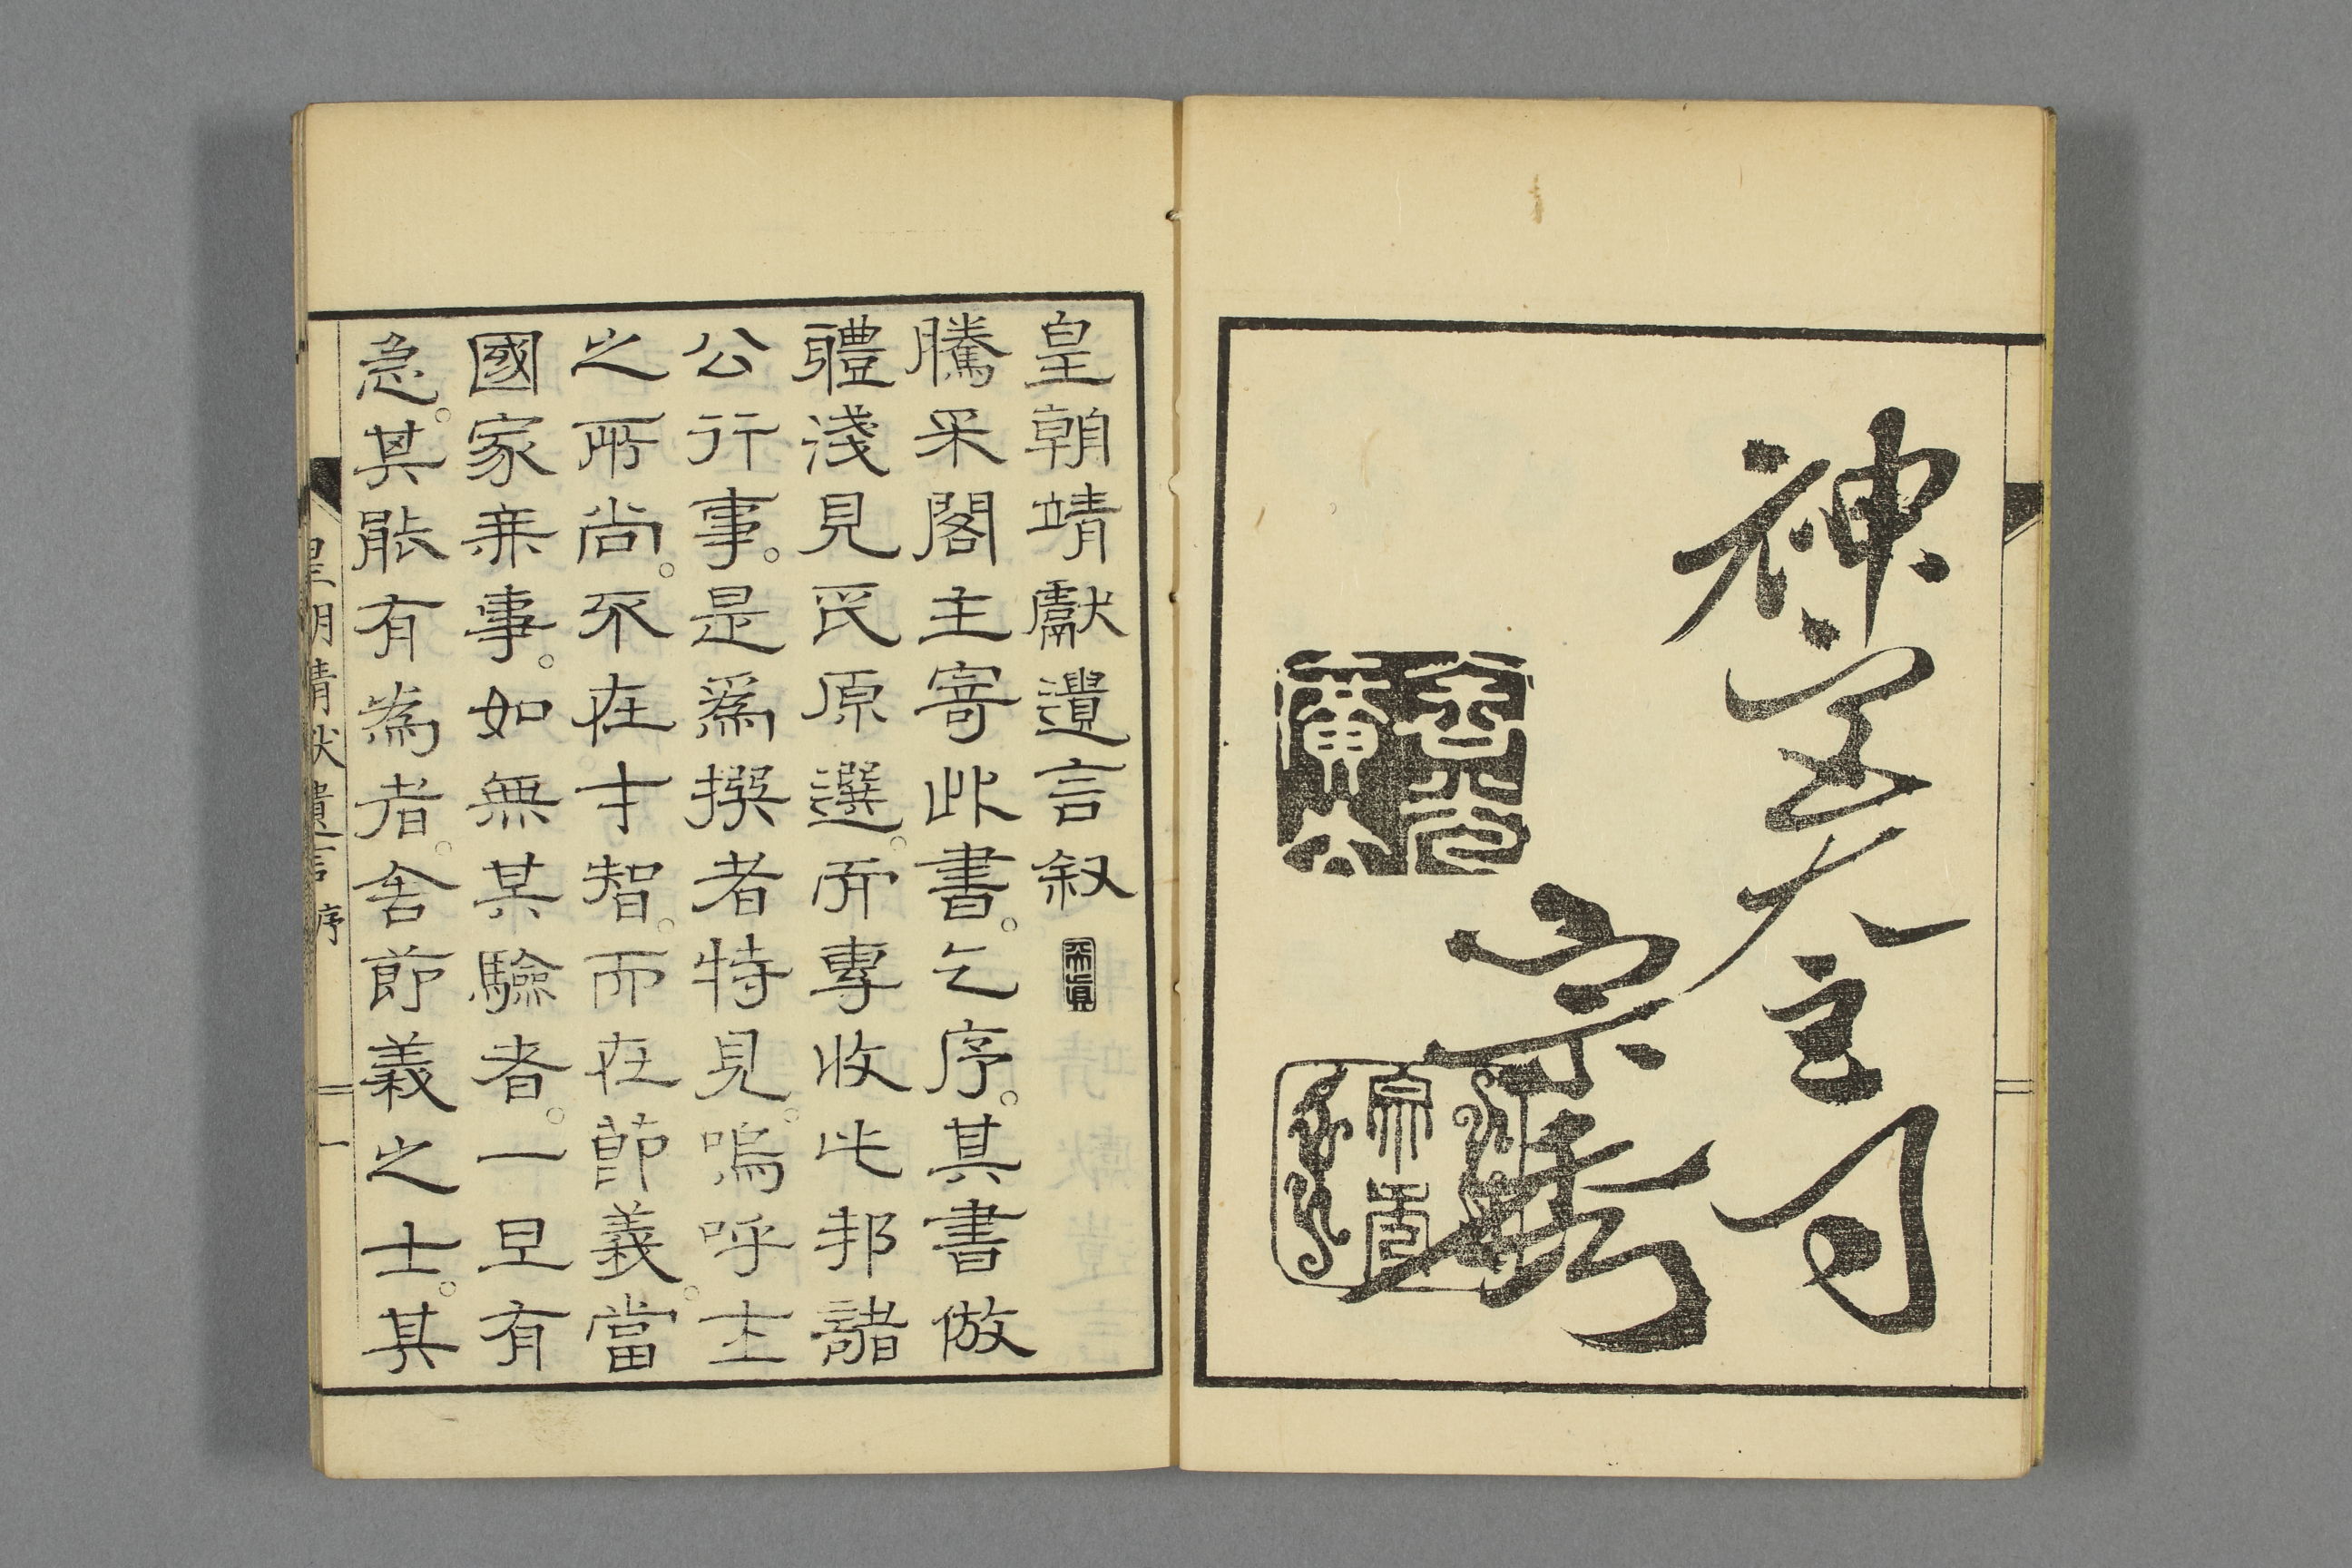 神宮大宮司
宗秀
皇朝靖獻遺言叙
騰采閣主寄此書。乞序。其書倣
體淺見氏原選。所專收此邦諸
公行事。是爲撰者特見。嗚呼士
之所尚。不在才智。而在節義。當
國家無事。如無其驗者。一旦有
急。其能有為者。舍節義之士。其
皇朝靖献遺言 序 一